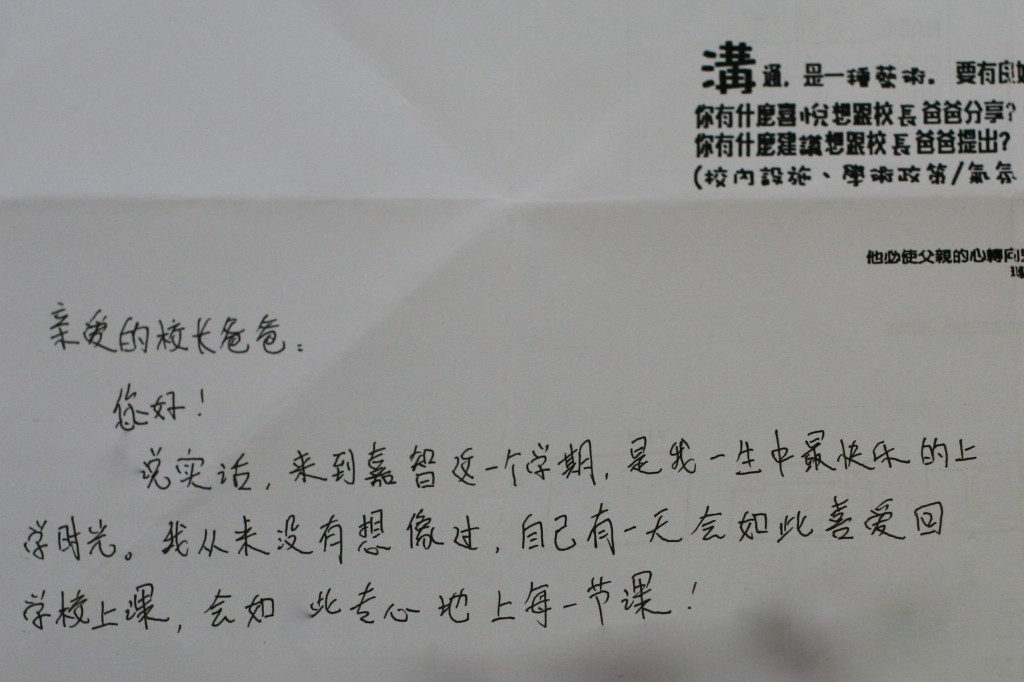 溝通, 是一種藝術. 要有良
你有什麼喜悅想跟校長爸爸分享?
你有什麼建議想跟校長爸爸提出?
(校內設施、學術政策/氣氛
他必使父親的心轉向
亲爱的校长爸爸:
您好!
说实话, 来到嘉智这一个学期, 是我一生中最快乐的上
学时光。我从来没有想像过, 自己有一天会如此喜爱回
学校上课, 会如此专心地上每一节课!